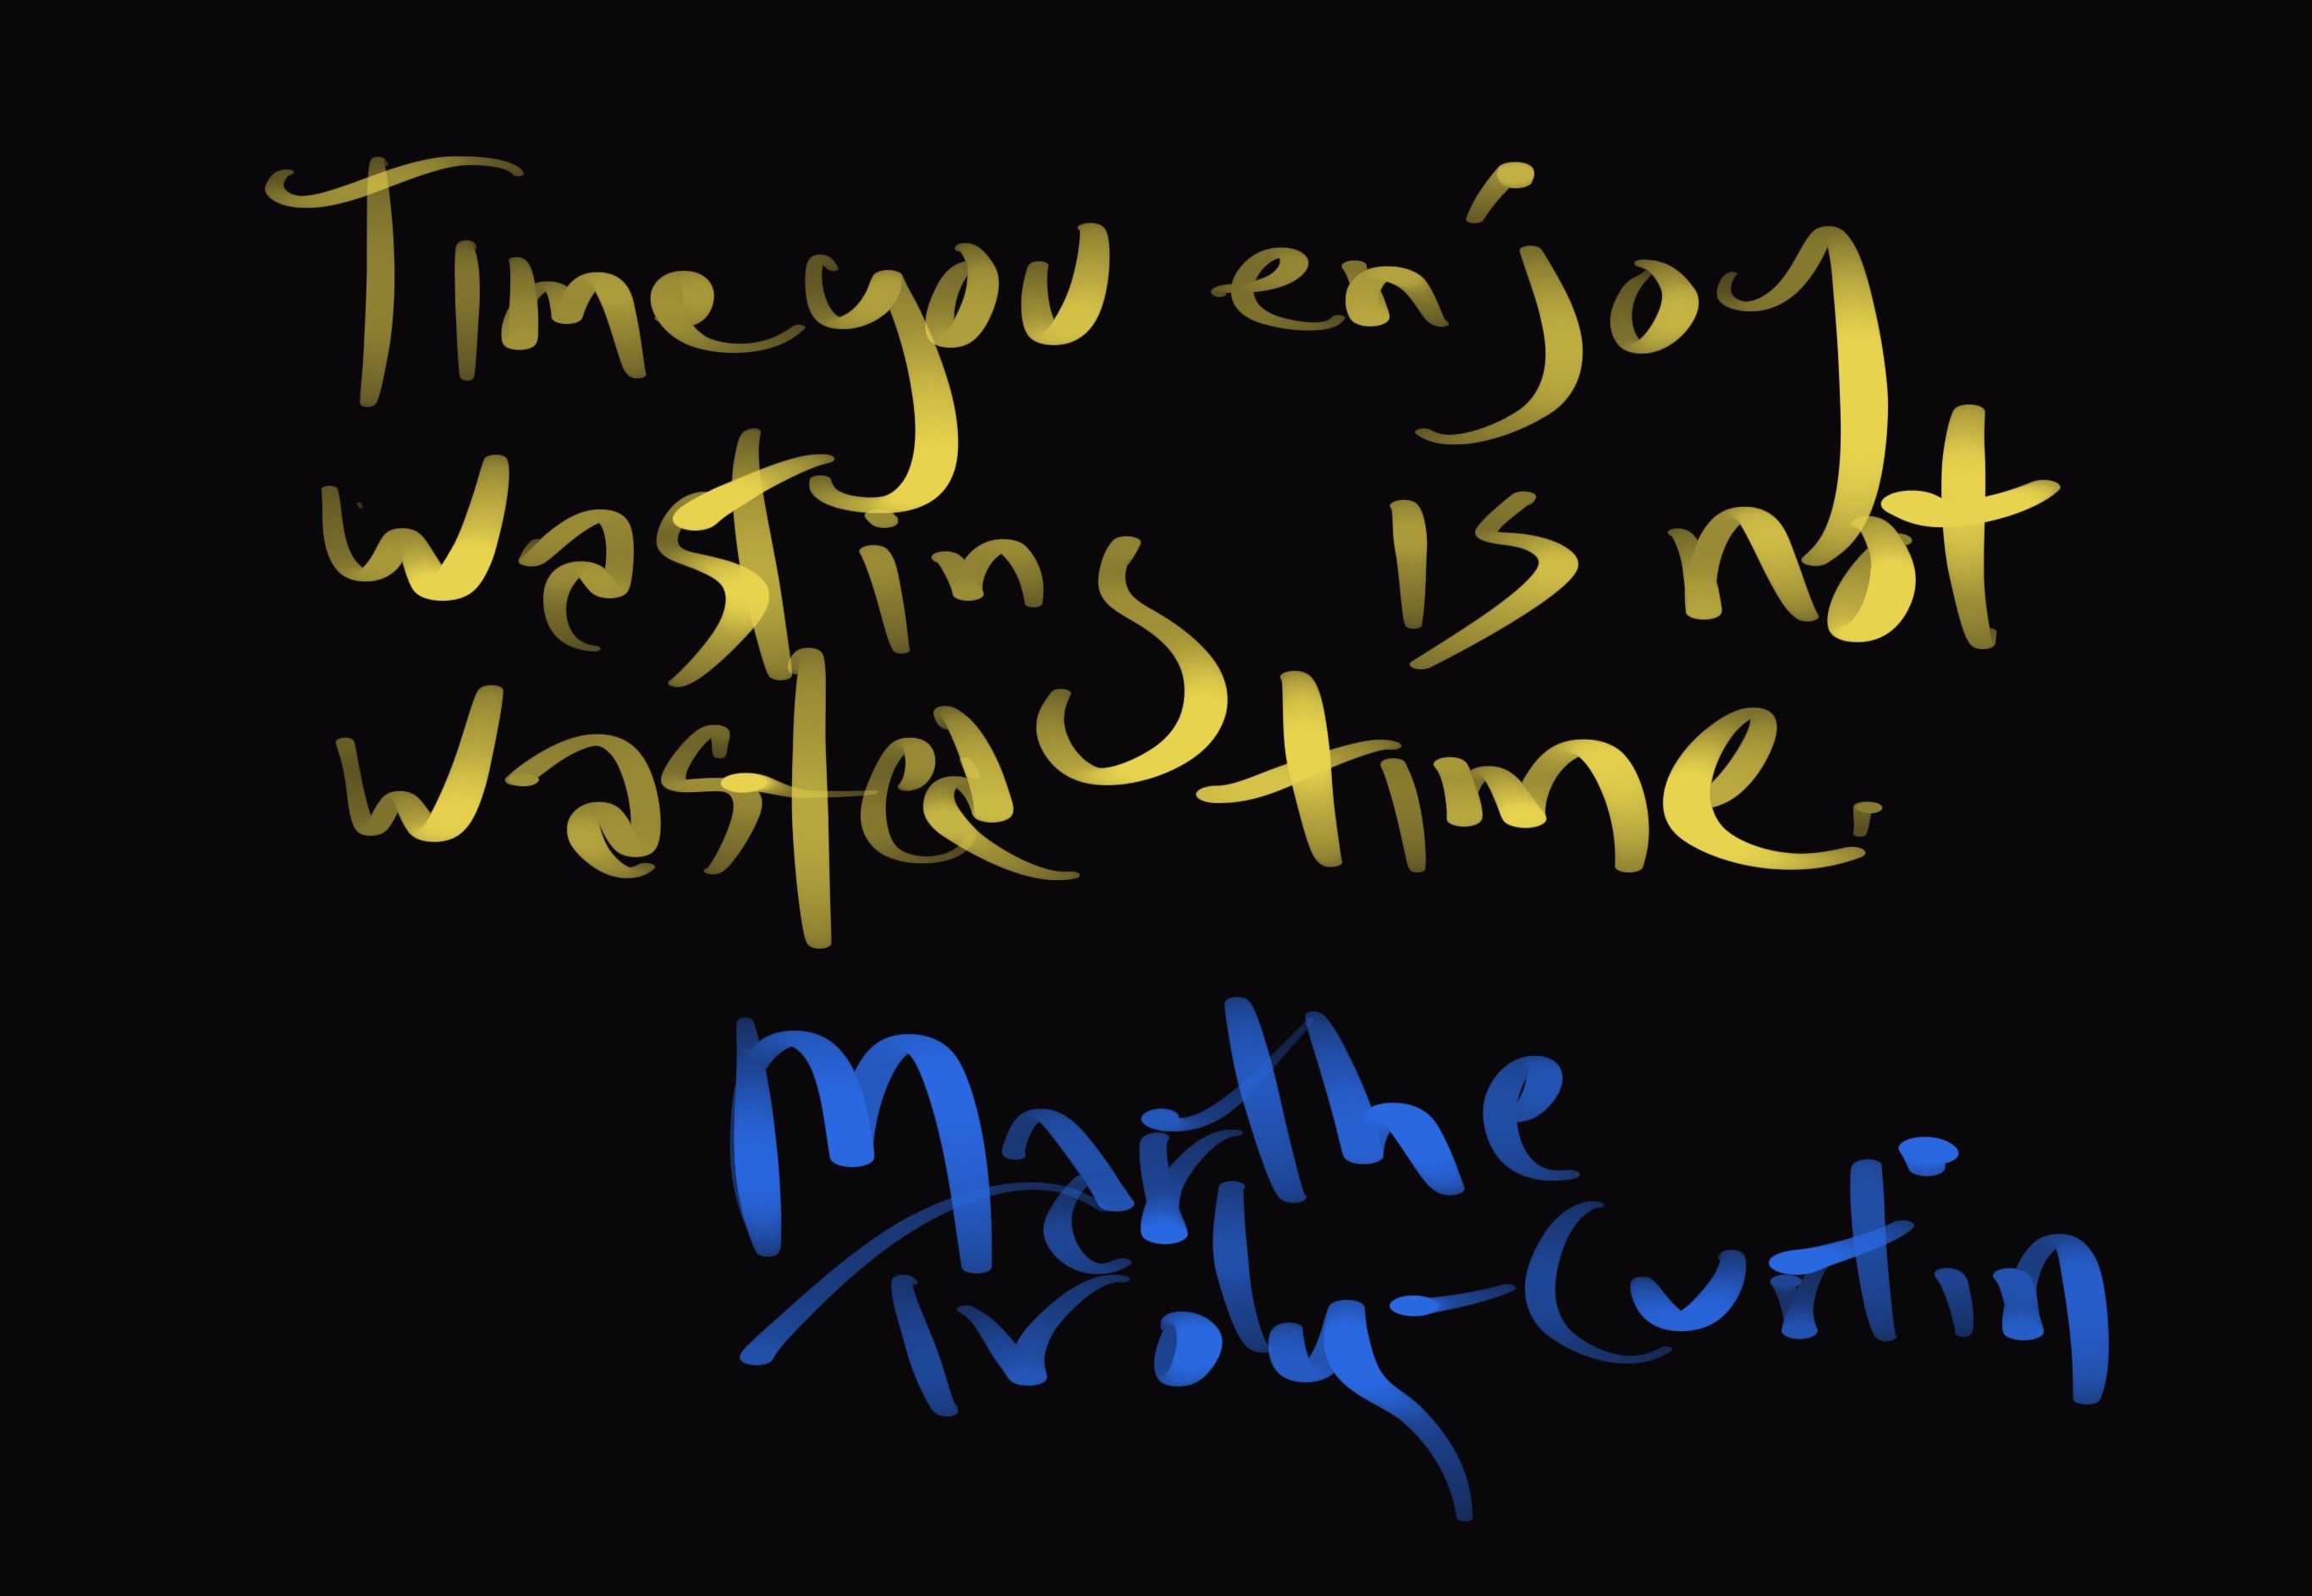 Time you enjoy
wasting is not
wasted time.
Marthe
Troly-Curtin